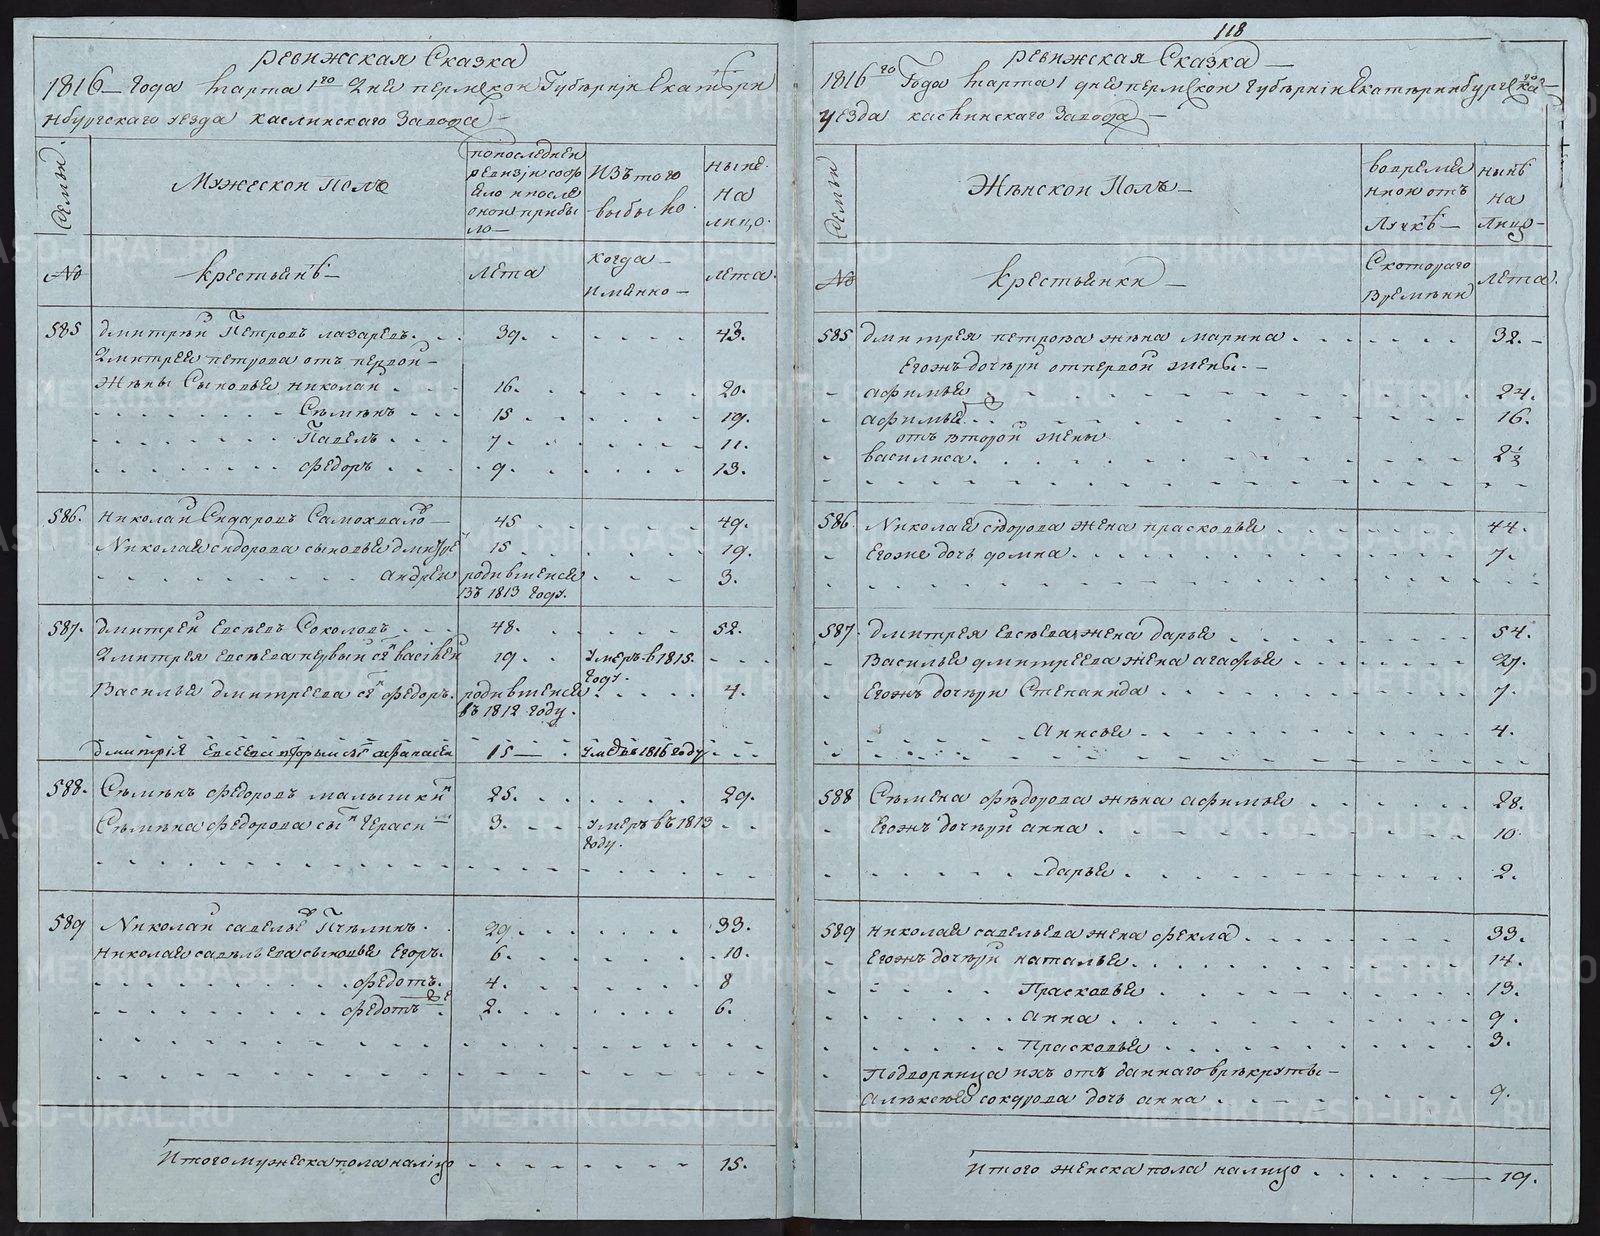 Ревижская Сказка
1816 Года марта 1го Дня пермской Губернiи Екатери
нбургскаго уезда каслинскаго завода
Семьи
Мужескои Полъ
попоследнеи
ревизiи состо
яло ипосле
оной прибы
ло
Изъ того
выбыло
ныне
На
лицо
№
крестьянъ
Лета
когда
Имянно
Лета
585 Дмитрiй Петровъ Лазаревъ 39. 43.
Дмитрея петрова отъ первой
Жены Сыновья николай 16. 20.
Семенъ 15 19.
Павелъ 7. 11.
федоръ 9. 13.
586. Николай Сидоровъ Самохвало 45 49.
Николая сидорова сыновья дмитре 15 19.
андреи родившеися 3.
въ 1813 году.
587. Дмитреи Евсеевъ Соколовъ 48. 52.
Дмитрея Евсеева первый сынъ василей 19 умеръ в 1815.
году.
Василья дмитреева сынъ федоръ. родившеися 4.
въ 1812 году.
Дмитрiя Евсеева вторый сынъ афанасеи 15 умеръ 1816 году
588. Семенъ федоровъ малышки 25. 29.
Семена федорова сынъ Гераси 3. умеръ въ 1813
году.
589 Николай савельевъ Пчелинъ. 29. 33.
николая савельева сыновья Егоръ. 6. 10.
федотъ. 4. 8
федотъ 2е 2. 6.
Итого мужеска пола налицо 15.
118
Ревижская Сказка
1816го Года марта 1 дня пермской Губернiи Екатеринбургскаго
уезда каслинскаго завода
Семьи
Женскои Полъ
вовремян
нной отъ
Лучкѣ
ныне
на
Лицо
№
крестьянки
Скотораго
Времяни
Лета.
585 Дмитрея петрова жена марина 32.
Егожъ дочери отпервой жены.
афимья 24.
афимья 2 16.
отъ второй жены
василиса. 2½
586 Николая сидорова жена прасковья 44.
Егоже дочь домна. 7.
587. Дмитрея Евсеева жена дарья 54.
Василья дмитреева жена агафья 27.
Егожъ дочери Степанида 7.
Анисья 4.
588 Семена федорова жена афимья 28.
Егожъ дочери анна 10.
дарья 2.
589 николая савельева жена фекла 33.
Егожъ дочери наталья. 14.
Прасковья 13.
анна 9.
Прасковья 3.
Подворница ихъ отъ даннаго врекруты
алексея дочь анна 9.
Итого женска пола налицо 19.